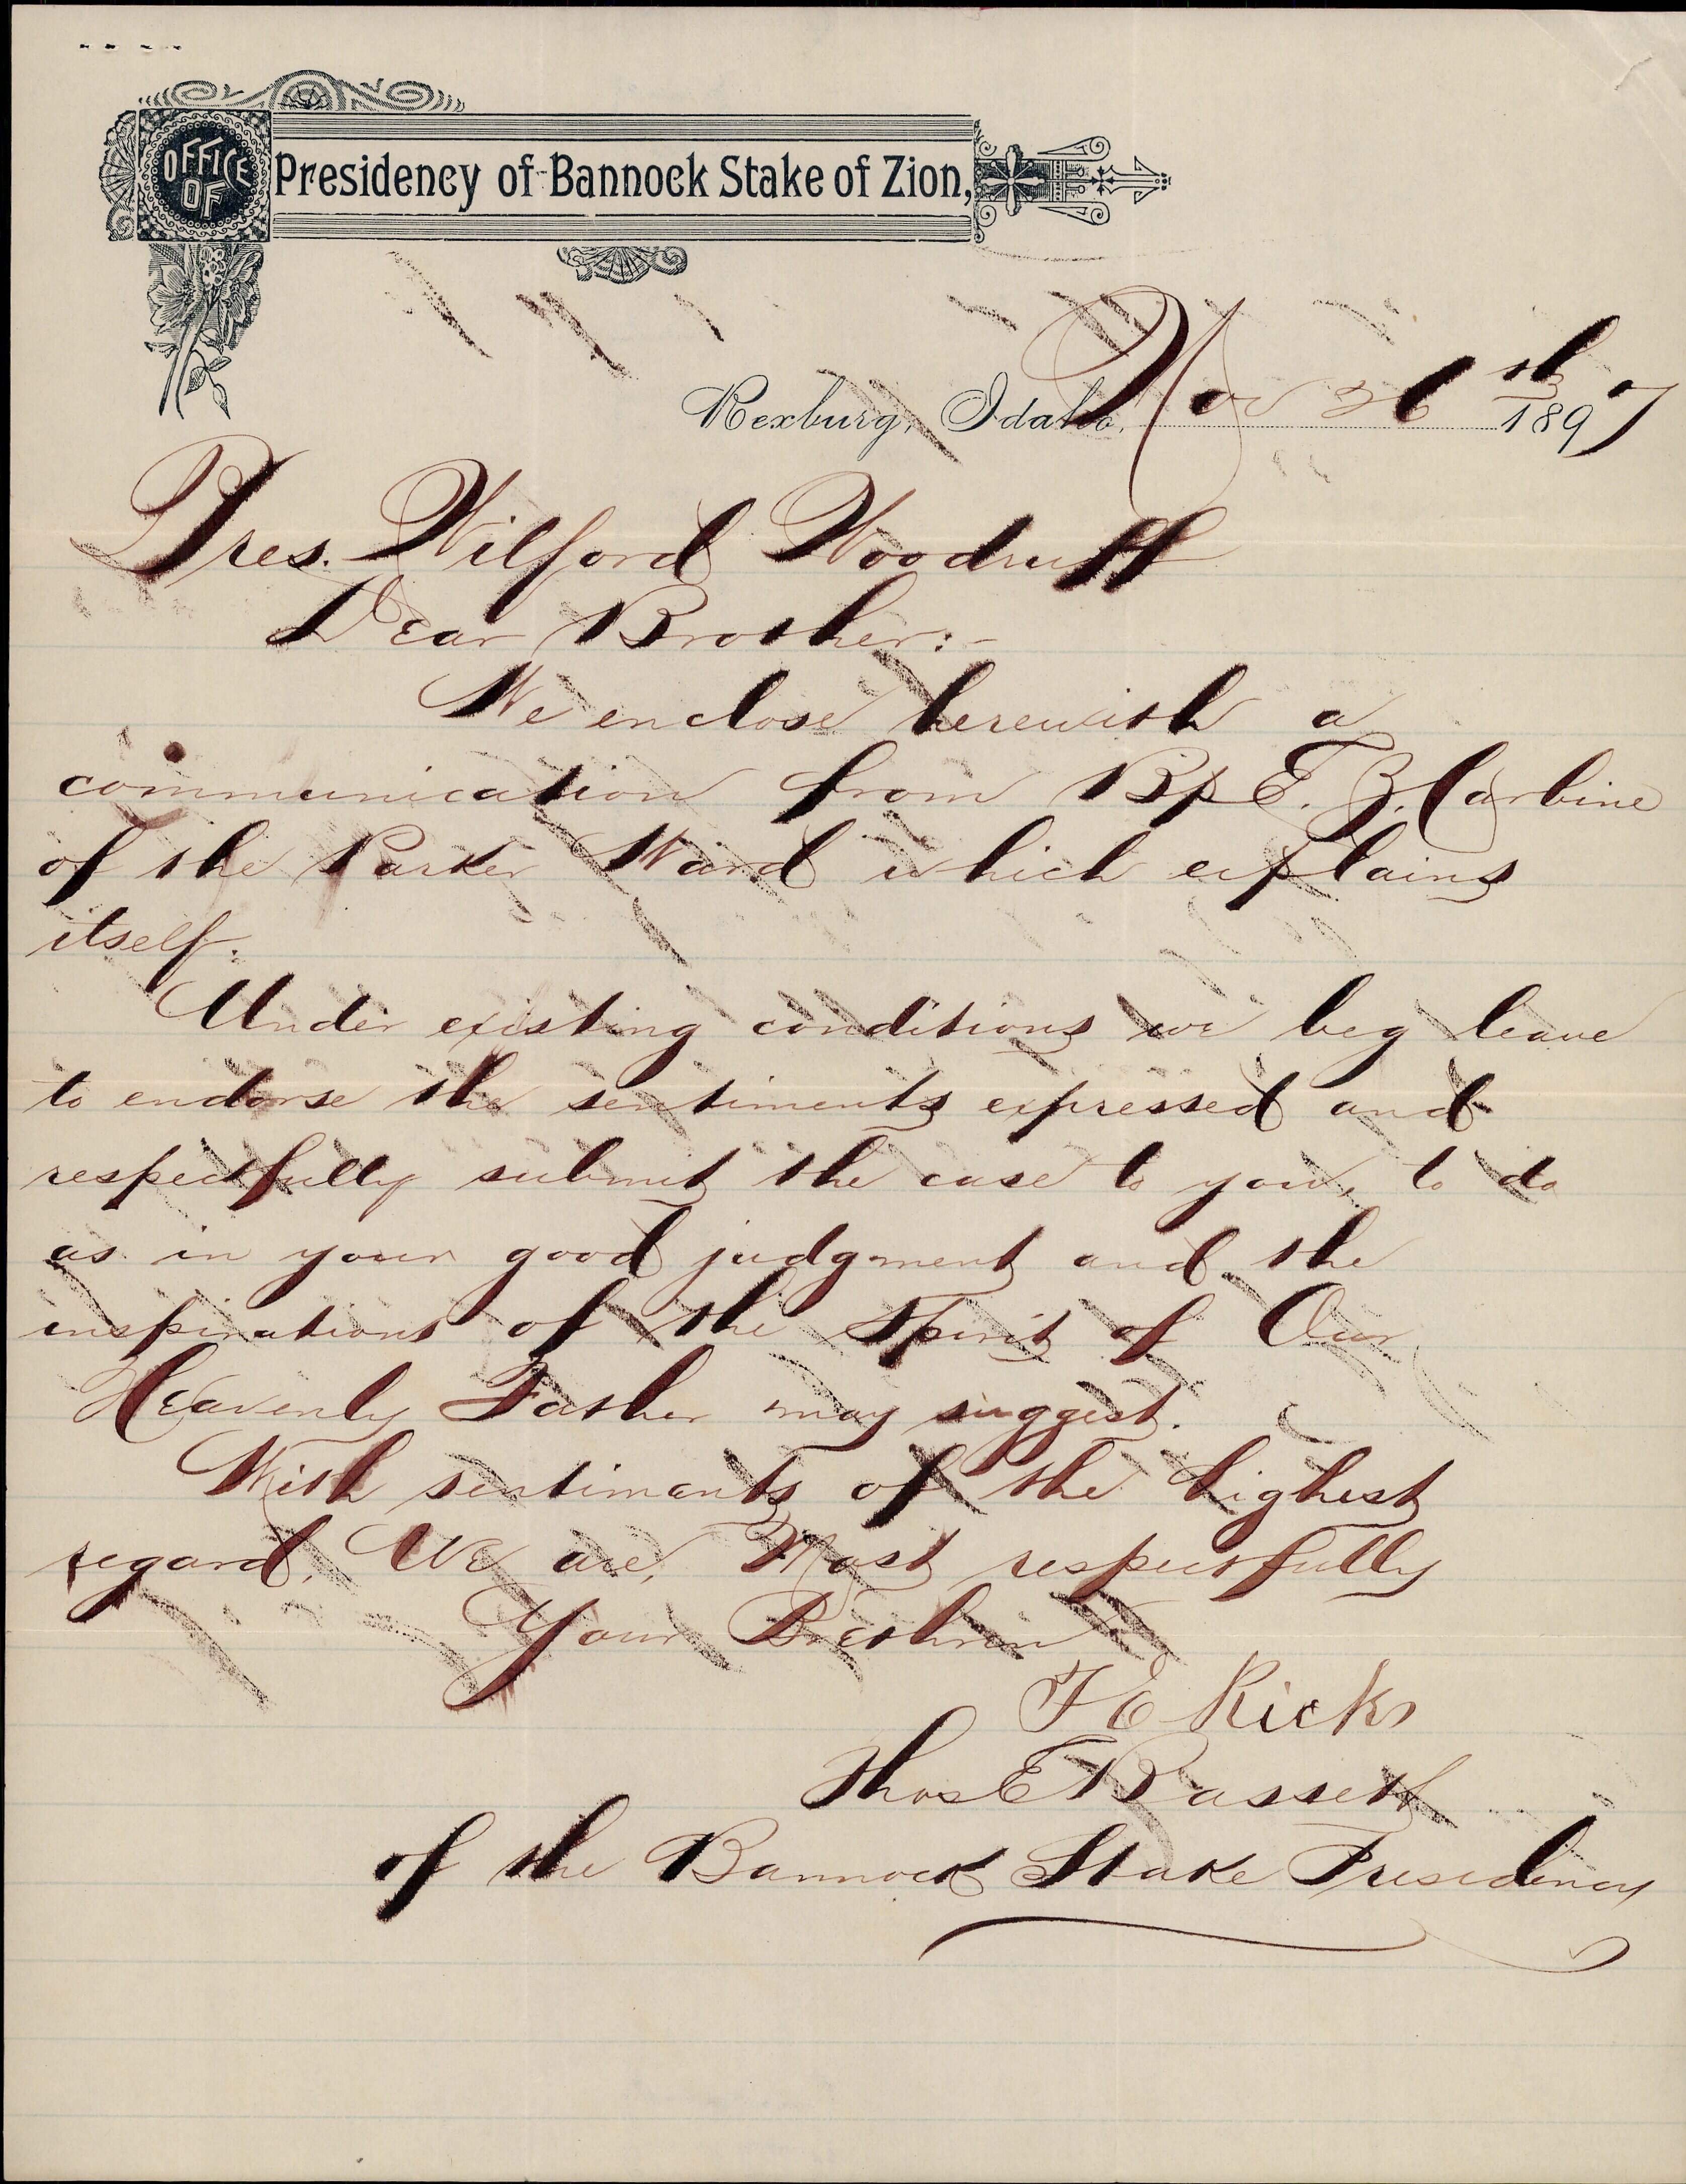 OFFICE OF Presidency of Bannock Stake of Zion,
Rexburg, Idaho, Nov 26th 1897
Pres. Wilford Woodruff
Dear Brother:-
We enclose herewith a
communication from Bp E. Z. Carbine
of the Parker Ward which explains
itself.
Under existing conditions we beg leave
to endorse the sentiments expressed and
respectfully submit the case to you, to do
as in your good judgment and the
inspirations of the Spirit of Our
Heavenly Father may suggest.
With sentiments of the highest
regard, We are, Most respectfully
Your Brethren
T E Ricks
Thos E Bassett
of the Bannock Stake Presidency